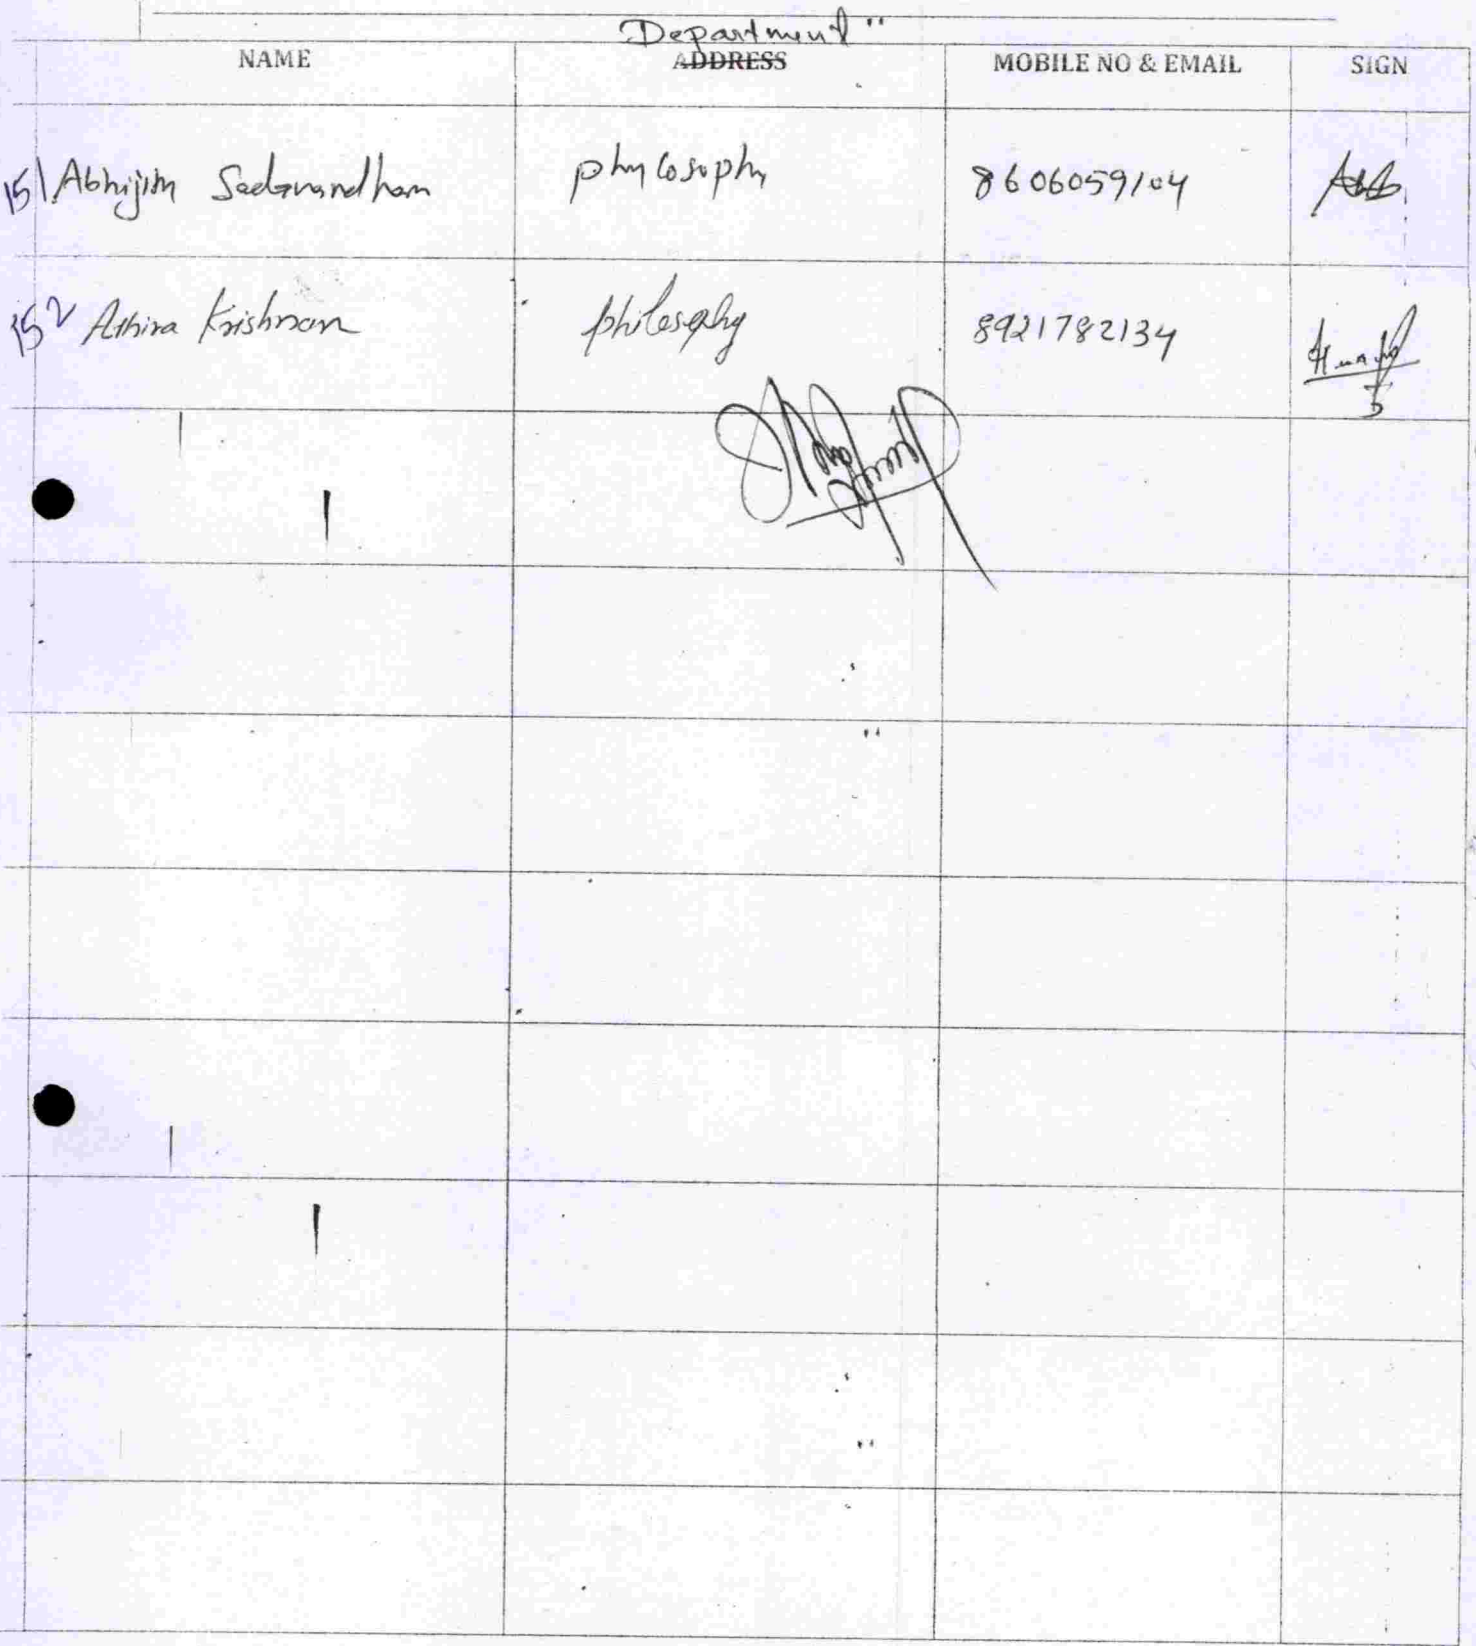 Department"
NAME ADDRESS MOBILE NO & EMAIL SIGN
151 Abhijith Sadanandham phylosophy 8606059104
152 Athira Krishnan philosophy 8921782134